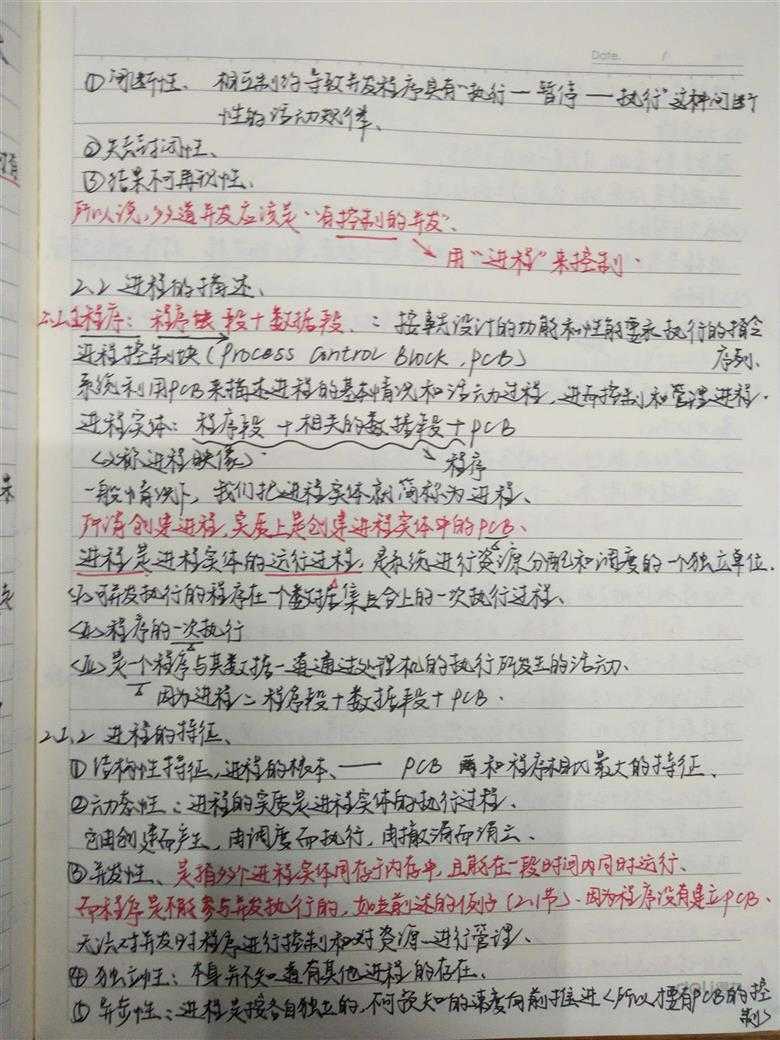 Date.
①间断性、相互制约导致并发程序具有"执行一暂停一执行"这种间断
性的活动规律、
②失去封闭性、
③结果不可再现性、
所以说,多道并发应该是"有控制的并发".
用"进程"来控制.
2.2 进程的描述、
程序: 程序 段+数据段、: 按事先设计的功能和性能要求执行的指令
序列.
进程控制块(Process Control Block,PCB)
系统利用PCB来描述进程的基本情况和活动过程,进而控制和管理进程.
进程实体: 程序段+相关的数据段+PCB
<又称进程映像> 程序
一般情况下,我们把进程实体就简称为进程、
所谓创建进程,实质上是创建进程实体中的PCB、
进程是进程实体的运行过程,是系统进行资源分配和调度的一个独立单位.
<I>可并发执行的程序在一个数据集合上的一次执行过程、
<II>程序的一次执行
<III>是一个程序与其数据一道通过处理机的执行所发生的活动、
因为进程=程序段+数据段+PCB.
2.2.2 进程的特征、
①结构性特征,进程的根本、—— PCB 和程序相比最大的特征、
②动态性:进程的实质是进程实体的执行过程、
它由创建而产生,由调度而执行,由撤消而消亡、
③并发性、是指多个进程实体同存于内存中,且能在一段时间内同时运行、
而程序是不能参与并发执行的,如前述的例子(2.1节)、因为程序没有建立PCB、
无法对并发时程序进行控制和对资源进行管理、
④独立性:本身并不知道有其他进程的存在、
⑤异步性:进程是按各自独立的,不可预知的速度向前推进<所以才要有PCB的控
制>